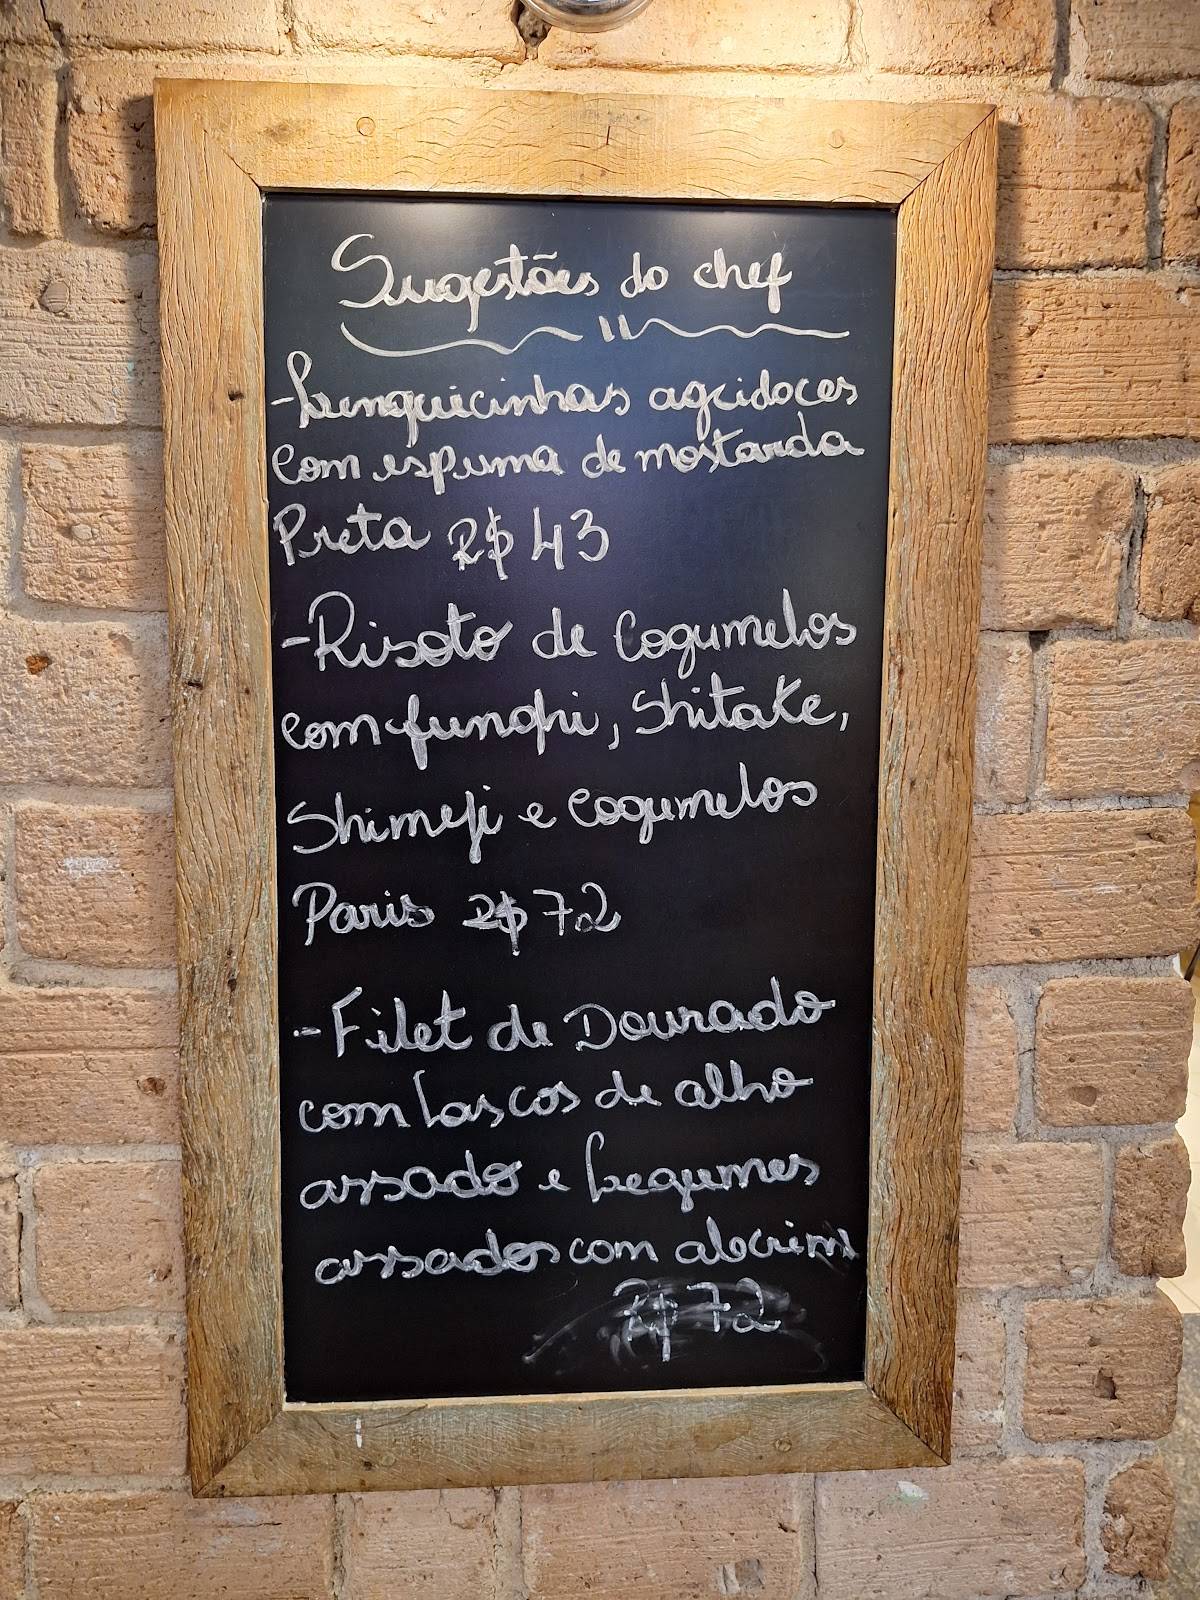 Sugestões do chef
- Linguicinhas agridoces
com espuma de mostarda
Preta R$ 43
- Risoto de Cogumelos
com funghi, Shitake,
Shimeji e cogumelos
Paris R$ 72
- Filet de Dourado
com Lascos de alho
assado e Legumes
assados com alecrim
R$ 72